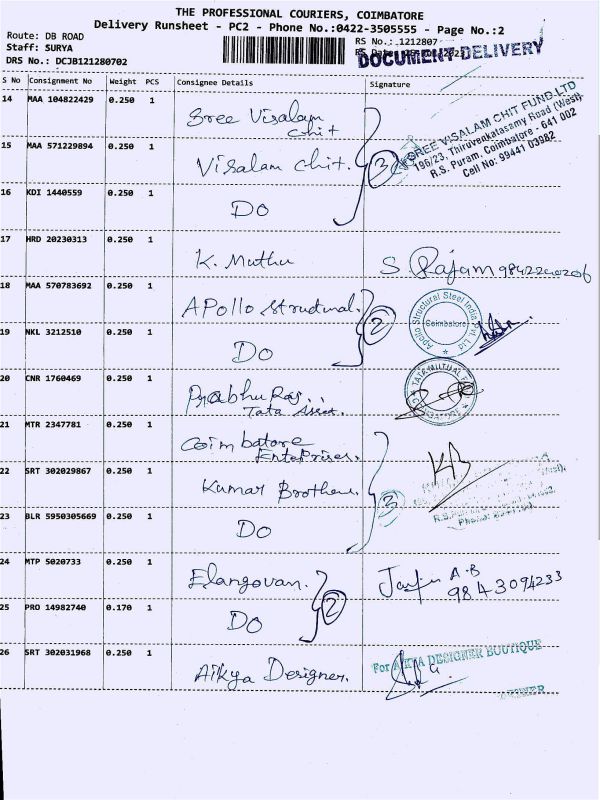 THE PROFESSIONAL COURIERS, COIMBATORE
Delivery Runsheet - PC2 - Phone No.:0422-3505555 - Page No.:2
Route: DB ROAD
RS No.: 1212807
Staff: SURYA
DOCUMENT-DELIVERY
DRS No.: DCJB121280702
S No Consignment No Weight PCS Consignee Details Signature
14 MAA 104822429 0.250 1 Sree Visalam
Chit
SREE VISALAM CHIT FUND LTD
196/23, Thiruvenkatasamy Road (West),
R.S. Puram, Coimbatore - 641 002
Cell No: 99441 03982
15 MAA 571229894 0.250 1 Visalam Chit. 3
16 KDI 1440559 0.250 1 DO
17 HRD 20230313 0.250 1 K. Muthu S Rajam
18 MAA 570783692 0.250 1 Apollo Structural. 2
Apollo Structural Steel India Pvt. Ltd
Coimbatore
19 NKL 3212510 0.250 1 DO
20 CNR 1760469 0.250 1 Prabhu Raj..
Tata Asset.
TATA MUTUAL
COIMBATORE
21 MTR 2347781 0.250 1 Coimbatore
Enterprises.
22 SRT 302029867 0.250 1 Kumar Brothers. 3 KB
23 BLR 5950305669 0.250 1 DO
24 MTP 5020733 0.250 1 Elangovan. 2 A.B
9843094233
25 PRO 14982740 0.170 1 DO
26 SRT 302031968 0.250 1 Aikya Designer.
For AIKYA DESIGNER BOUTIQUE